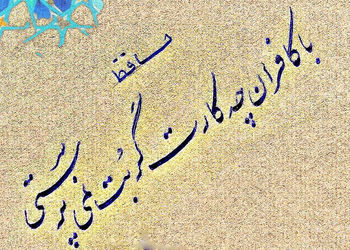 حافظ
با کافران چه کارت گر بت نمی پرستی